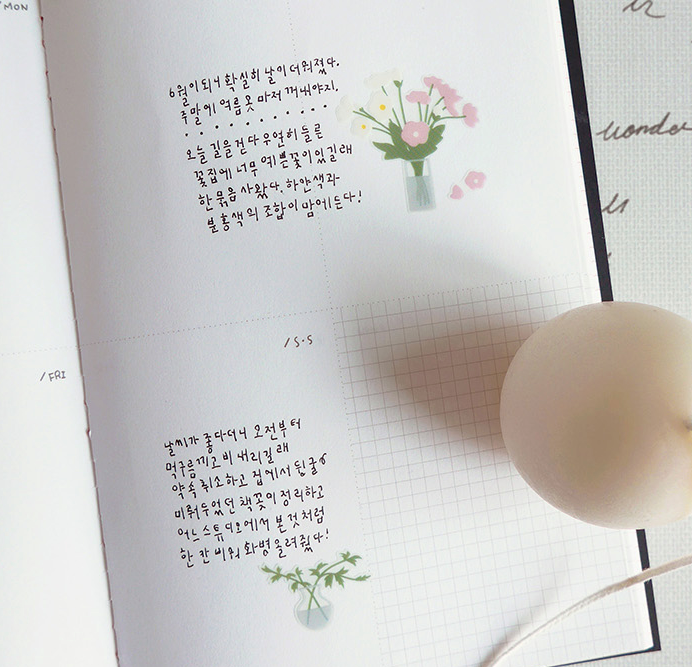 /MON
6월이 되니 확실히 날이 더워졌다.
주말에 여름옷 마저 꺼내야지.
..........
오늘 길을 걷다 우연히 들른
꽃집에 너무 예쁜 꽃이 있길래
한 묶음 사왔다. 하얀색과
분홍색의 조합이 맘에 든다!
/S·S
/FRI
날씨가 좋다더니 오전부터
먹구름 끼고 비 내리길래
약속 취소하고 집에서 뒹굴
미뤄두었던 책꽂이 정리하고
어느 스튜디오에서 본 것처럼
한 칸 비워 화병 올려뒀다!
wonder